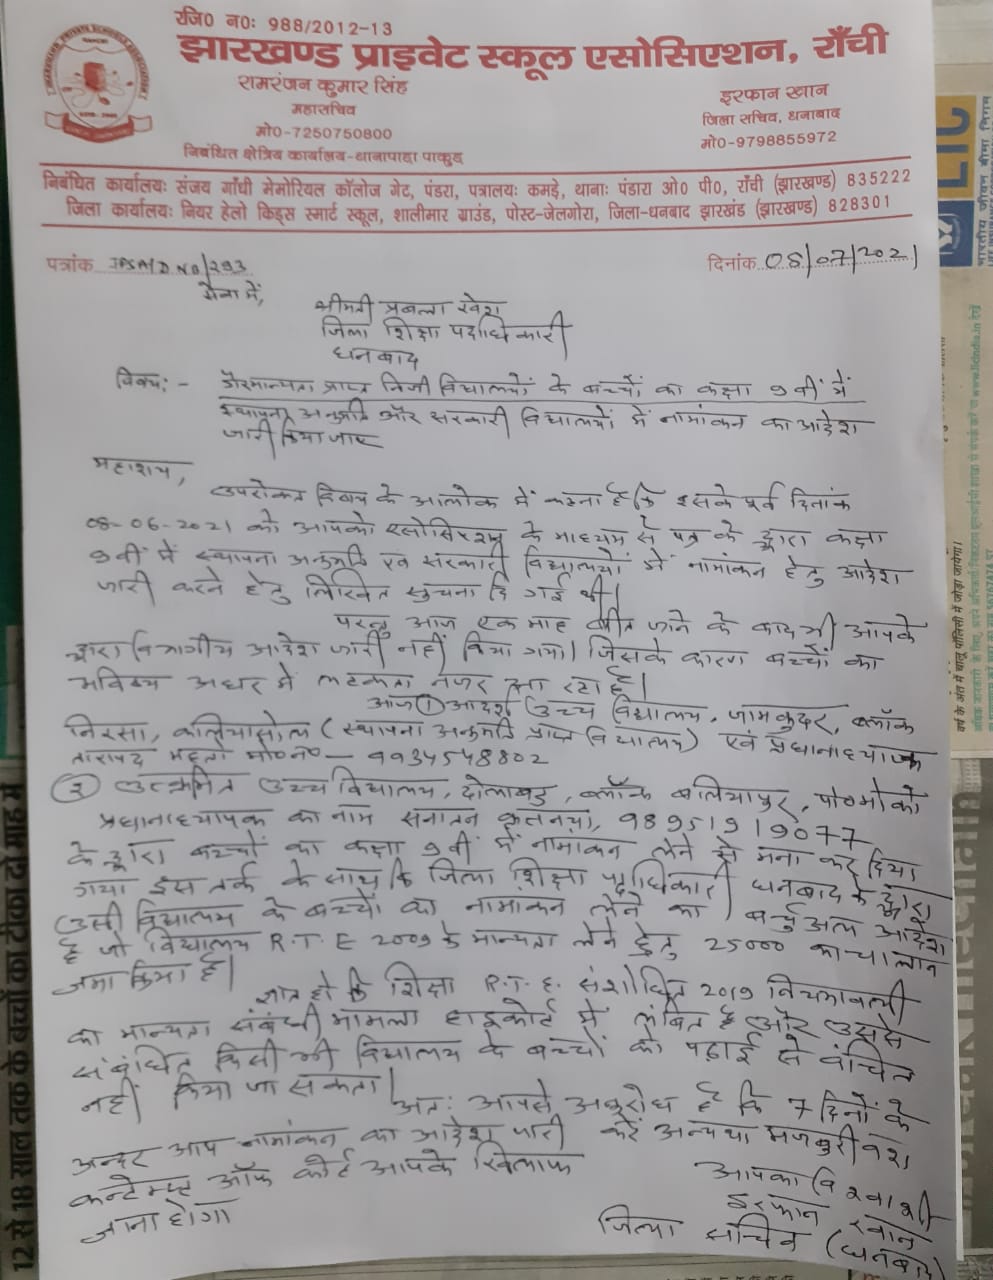 रजि0 न0: 988/2012-13
झारखण्ड प्राइवेट स्कूल एसोसिएशन, राँची
रामरंजन कुमार सिंह
महासचिव
मो0-7250750800
निबंधित क्षेत्रिय कार्यालय-थानापाड़ा पाकुड़
इरफान खान
जिला सचिव, धनाबाद
मो0-9798855972
निबंधित कार्यालयः संजय गाँधी मेमोरियल कॉलोज गेट, पंडरा, पत्रालयः कमड़े, थानाः पंडारा ओ0 पी0, राँची (झारखण्ड) 835222
जिला कार्यालयः नियर हेलो किड्स स्मार्ट स्कूल, शालीमार ग्राउंड, पोस्ट-जेलगोरा, जिला-धनबाद झारखंड (झारखण्ड) 828301
पत्रांक JPSA/D NO/293
दिनांक 08/07/2021
सेवा में,
श्रीमती प्रबला खेश
जिला शिक्षा पदाधिकारी
धनबाद
विषय:- गैरमान्यता प्राप्त निजी विद्यालयों के बच्चों का कक्षा 9वीं में
स्थापना अनुमति और सरकारी विद्यालयों में नामांकन का आदेश
जारी किया जाए
महाशय,
उपरोक्त विषय के आलोक में कहना है कि इसके पूर्व दिनांक
08-06-2021 को आपको एसोसिएशन के माध्यम से पत्र के द्वारा कक्षा
9वीं में स्थापना अनुमति एवं सरकारी विद्यालयों में नामांकन हेतु आदेश
जारी करने हेतु लिखित सुचना दि गई थी।
परन्तु आज एक माह बीत जाने के बाद भी आपके
द्वारा विभागीय आदेश जारी नहीं किया गया। जिसके कारण बच्चों का
भविष्य अधर में लटकता नजर आ रहा है।
आज ① आदर्श उच्च विद्यालय, जामकुदर, ब्लॉक
निरसा, कलियासोल (स्थापना अनुमति प्राप्त विद्यालय) एवं प्रधानाध्यापक
तारापद महतो मो०न०- 9934548802
② उत्क्रमित उच्च विद्यालय, दोलाबड़, ब्लॉक बलियापुर,
प्रधानाध्यापक का नाम सनातन 98951919077
के द्वारा बच्चों का कक्षा 9वीं में नामांकन लेने से मना कर दिया
गया इस तर्क के साथ कि जिला शिक्षा पदाधिकारी धनबाद के द्वारा
उसी विद्यालय के बच्चों का नामांकन लेने का बर्चुअल आदेश
है जो विद्यालय R.T.E 2009 के मान्यता लेने हेतु 25000 का चालान
जमा किया है।
ज्ञात हो कि शिक्षा R.T.E. संशोधित 2019 नियमावली
का मान्यता संबंधी मामला हाइकोर्ट में लंबित है और उससे
संबंधित किसी भी विद्यालय के बच्चों को पढ़ाई से वंचित
नहीं किया जा सकता।
अतः आपसे अनुरोध है कि 7 दिनों के
अन्दर आप नामांकन का आदेश जारी करें अन्यथा मजबुरी वश
कन्टेम्प्ट ऑफ कोर्ट आपके खिलाफ
जाना होगा
आपका विश्वासी
इरफान खान
जिला सचिव (धनबाद)
LIC
भारतीय जीवन बीमा निगम
12 से 18 साल तक के बच्चों का टीका दो माह में